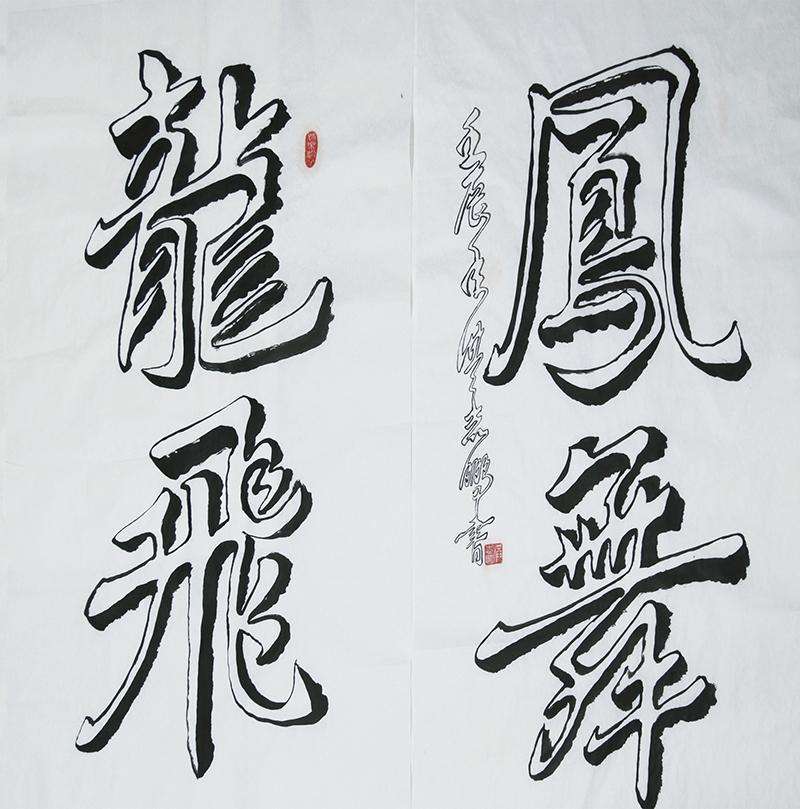 龍飛
鳳舞
壬辰春洪志鵬書